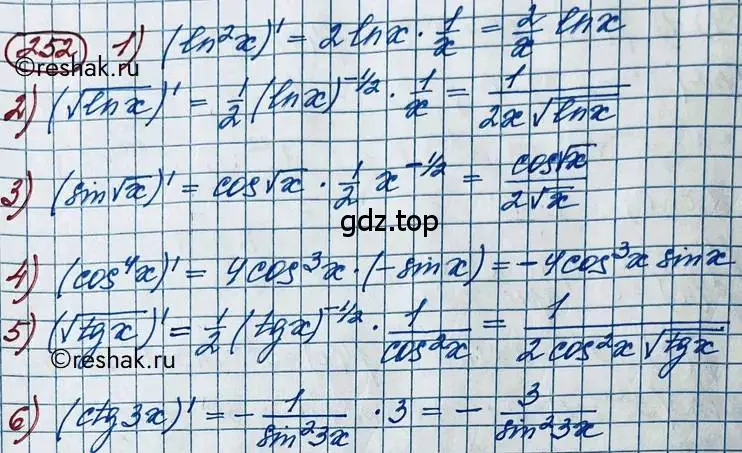 252 1) (ln²x)' = 2lnx · 1/x = 2/x lnx
©reshak.ru
2) (√lnx)' = 1/2 (lnx)^(-1/2) · 1/x = 1/(2x√lnx)
3) (sin√x)' = cos√x · 1/2 x^(-1/2) = cos√x/(2√x)
gdz.top
4) (cos⁴x)' = 4cos³x · (-sinx) = -4cos³x sinx
5) (√tgx)' = 1/2 (tgx)^(-1/2) · 1/cos²x = 1/(2cos²x√tgx)
©reshak.ru
6) (ctg3x)' = - 1/sin²3x · 3 = - 3/sin²3x